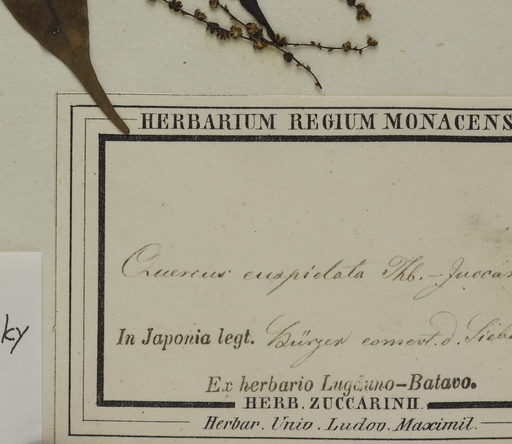 HERBARIUM REGIUM MONACENS
Quercus cuspidata Thb. – Juccar
ky
In Japonia legt. Bürger comevt. d. Sieb
Ex herbario Lugduno–Batavo.
HERB. ZUCCARINII.
Herbar. Univ. Ludov. Maximil.